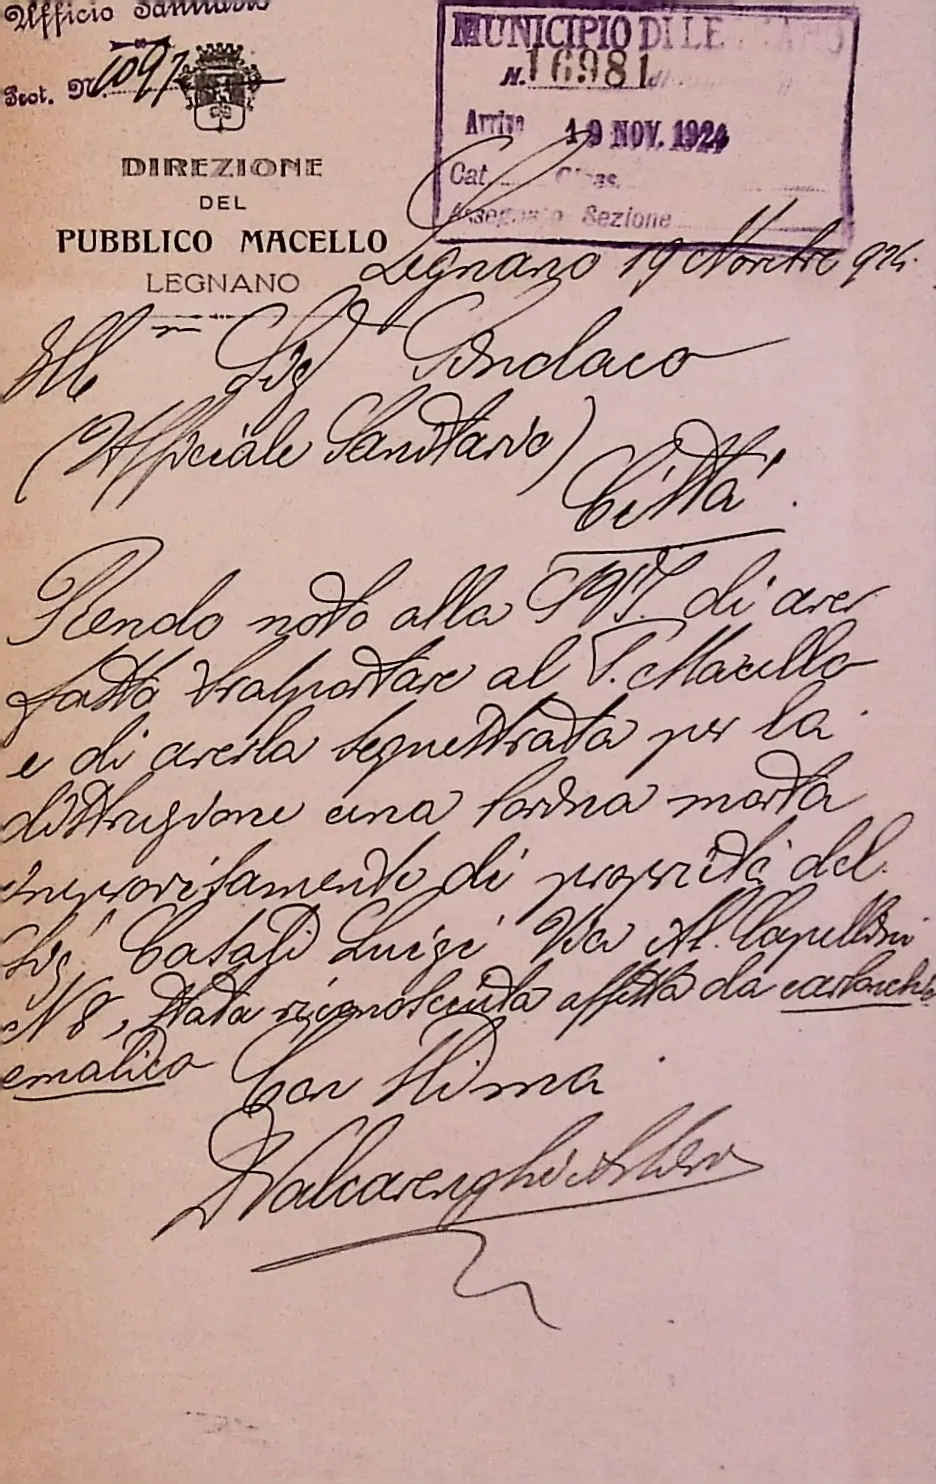 Ufficio Sanitario
Prot. N. 1097
DIREZIONE
DEL
PUBBLICO MACELLO
LEGNANO
MUNICIPIO DI LEGNANO
N. 16981 di
Arrivo 19 NOV. 1924
Cat. Clas.
Assegnato Sezione
Legnano 19 Novbre 924.
Ill mo Sig Sindaco
(Ufficiale Sanitario)
Città.
Rendo noto alla S.V.I. di aver
fatto trasportare al P. Macello
e di averla sequestrata per la
distruzione una bovina morta
improvisamente di proprietà del
Sig. Casati Luigi Via Al. Capellini
N 8, stata riconosciuta affetta da carbonchio
ematico Con stima
D Valcarenghi